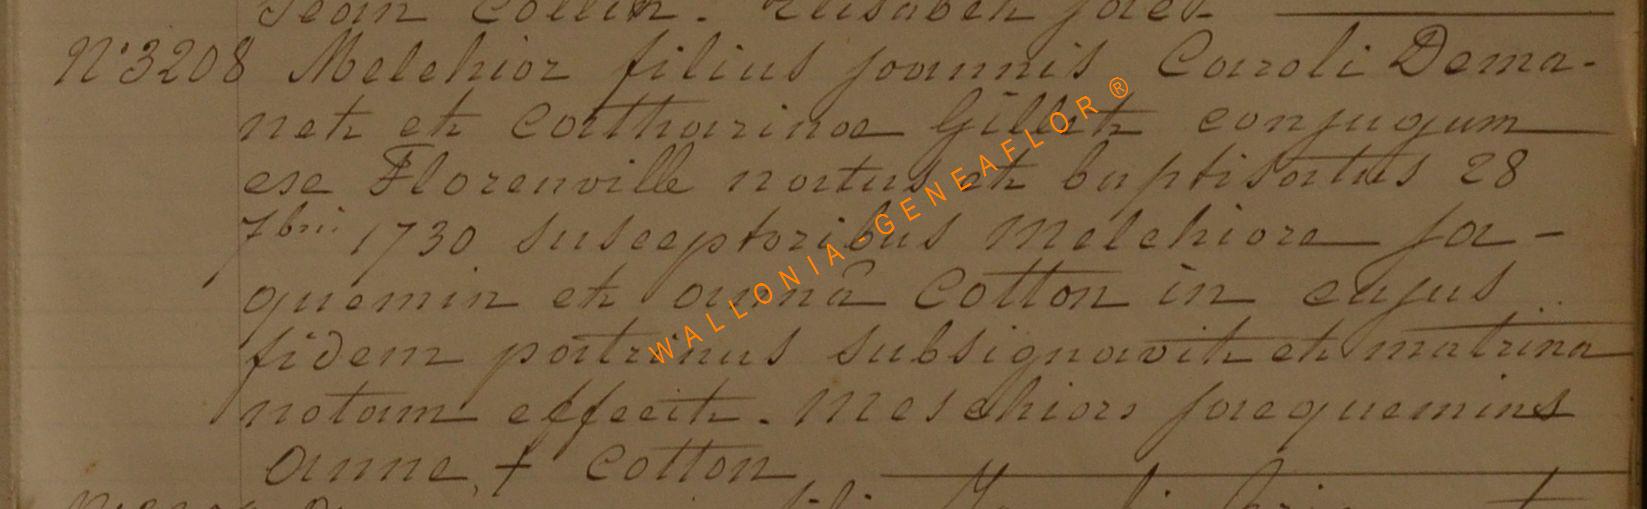 Jean Collin. Elisabeth Jac.
N° 3208 Melchior filius joannis Caroli Dema-
net et Catharinae Gillet conjugum
ese Florenville natus et baptisatus 28
7bris 1730 susceptoribus Melchiore Ja-
quemin et annâ Cotton in cujus
fidem patrinus subsignavit et matrina
notam effecit. Meschiors Jacquemins
Anne + Cotton
WALLONIA-GENEAFLOR®